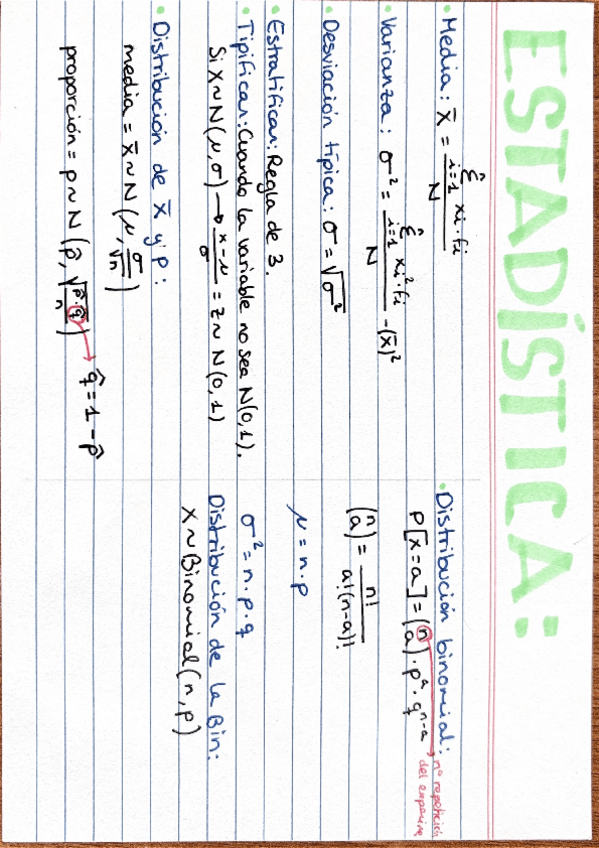 ESTADÍSTICA:
• Media: x̄ = Σ̂ i=1 xi·fi / N
• Varianza: σ² = Σ̂ i=1 xi²·fi / N - (x̄)²
• Desviación típica: σ = √σ²
• Estratificar: Regla de 3.
• Tipificar: Cuando la variable no sea N(0,1).
Si X~N(μ,σ) → x-μ / σ = z ~ N(0,1)
• Distribución de x̄ y p:
media = x̄ ~ N(μ, σ/√n)
proporción = p ~ N(p̂, √p̂·q̂/n) → q̂ = 1 - p̂
• Distribución binomial:
P[x=a] = (n a)·pᵃ·qⁿ⁻ᵃ → nº
del
(n a) = n! / a!(n-a)!
μ = n·p
σ² = n·p·q
Distribución de la Bin:
X ~ Binomial(n,p)